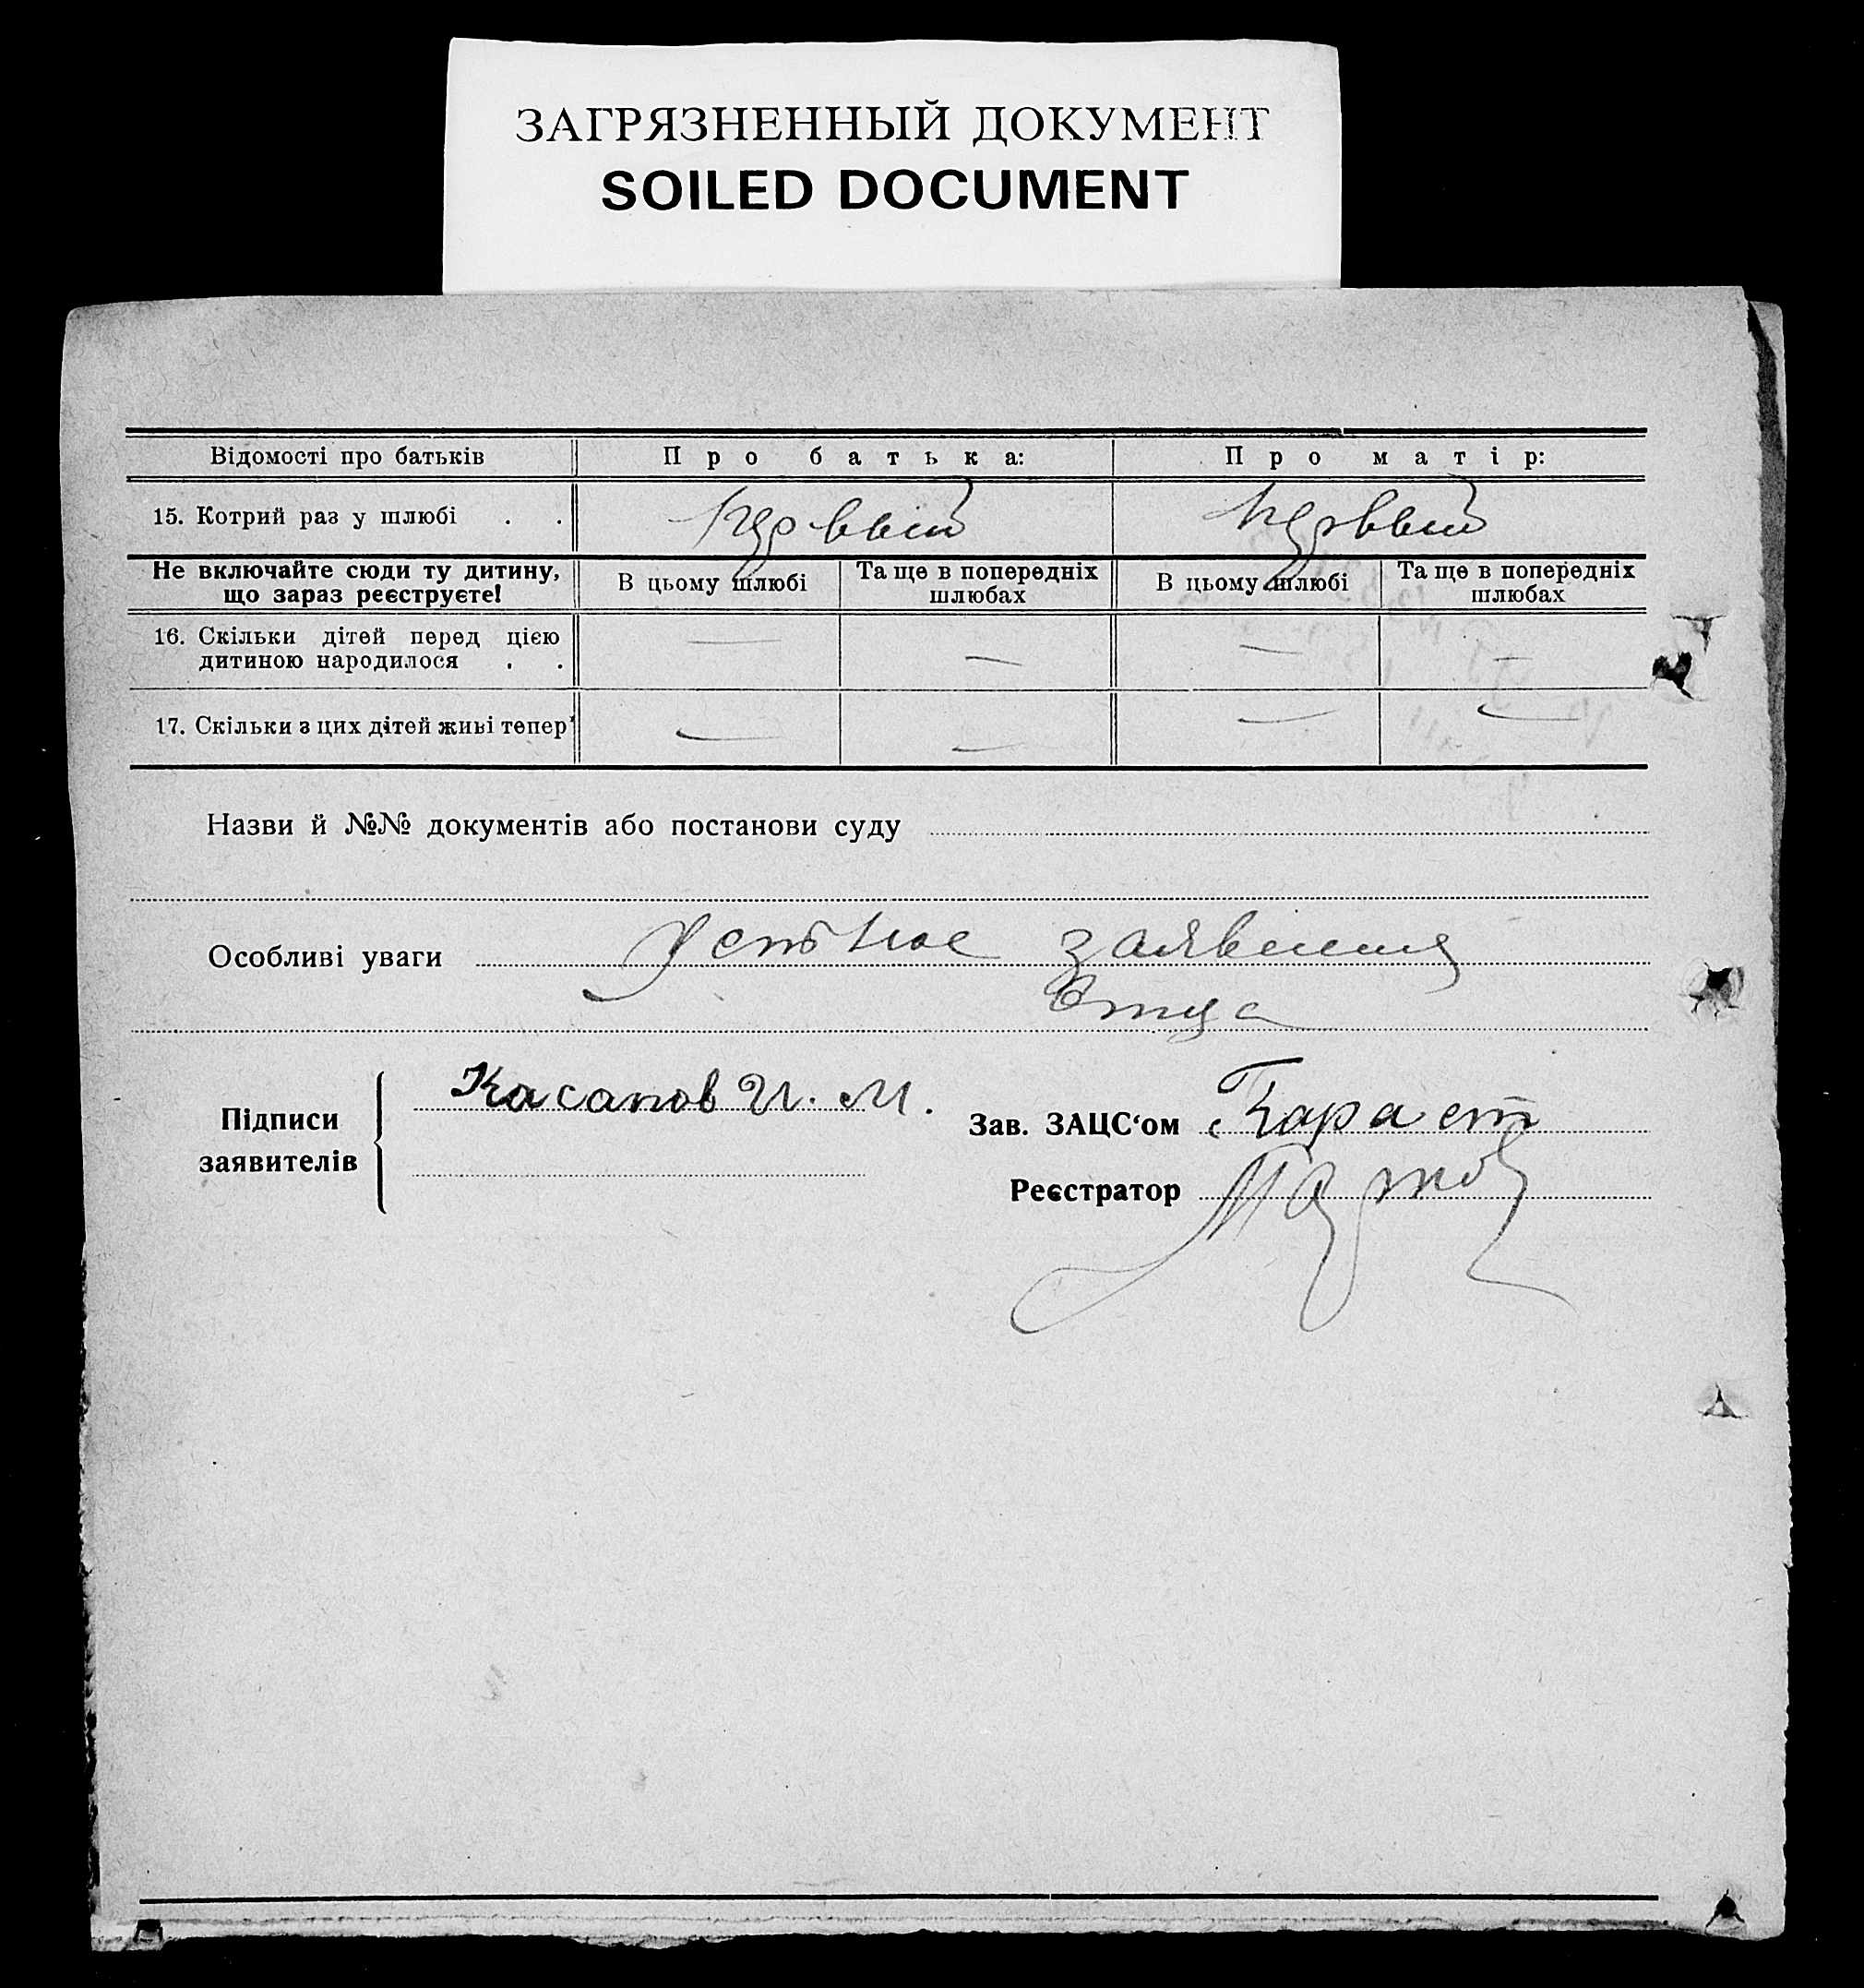 ЗАГРЯЗНЕННЫЙ ДОКУМЕНТ
SOILED DOCUMENT
Відомості про батьків Про батька: Про матір:
15. Котрий раз у шлюбі . . Первый Первый
Не включайте сюди ту дитину, що зараз реєструєте! В цьому шлюбі Та ще в попередніх шлюбах В цьому шлюбі Та ще в попередніх шлюбах
16. Скільки дітей перед цією — — — —
дитиною народилося . .
17. Скільки з цих дітей живі тепер — — — —
Назви й №№ документів або постанови суду
Особливі уваги Устное заявление
Отца
Підписи заявителів Касапов И. М.
Зав. ЗАЦС‘ом
Реєстратор